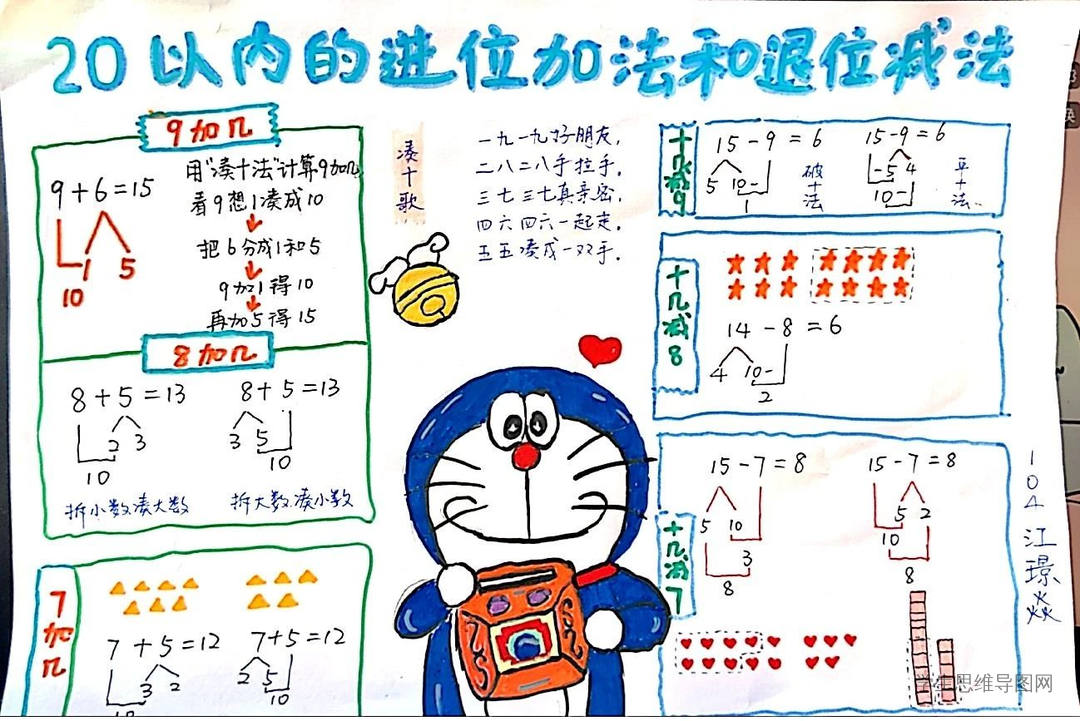 20以内的进位加法和退位减法
9加几
9+6=15
1 5
10
用"凑十法"计算9加几
看9想1凑成10
把6分成1和5
9加1得10
再加5得15
8加几
8+5=13
2 3
10
拆小数凑大数
8+5=13
3 5
10
拆大数凑小数
7加几
7+5=12
3 2
7+5=12
2 5
10
凑十歌
一九一九好朋友,
二八二八手拉手,
三七三七真亲密,
四六四六一起走,
五五凑成一双手.
十几减9
15-9=6
5 10-
1
破十法
15-9=6
-5 4
10-
平十法
十几减8
14-8=6
4 10-
2
十几减7
15-7=8
5 10
3
8
15-7=8
5 2
10
8
104 江璟焱
学生思维导图网